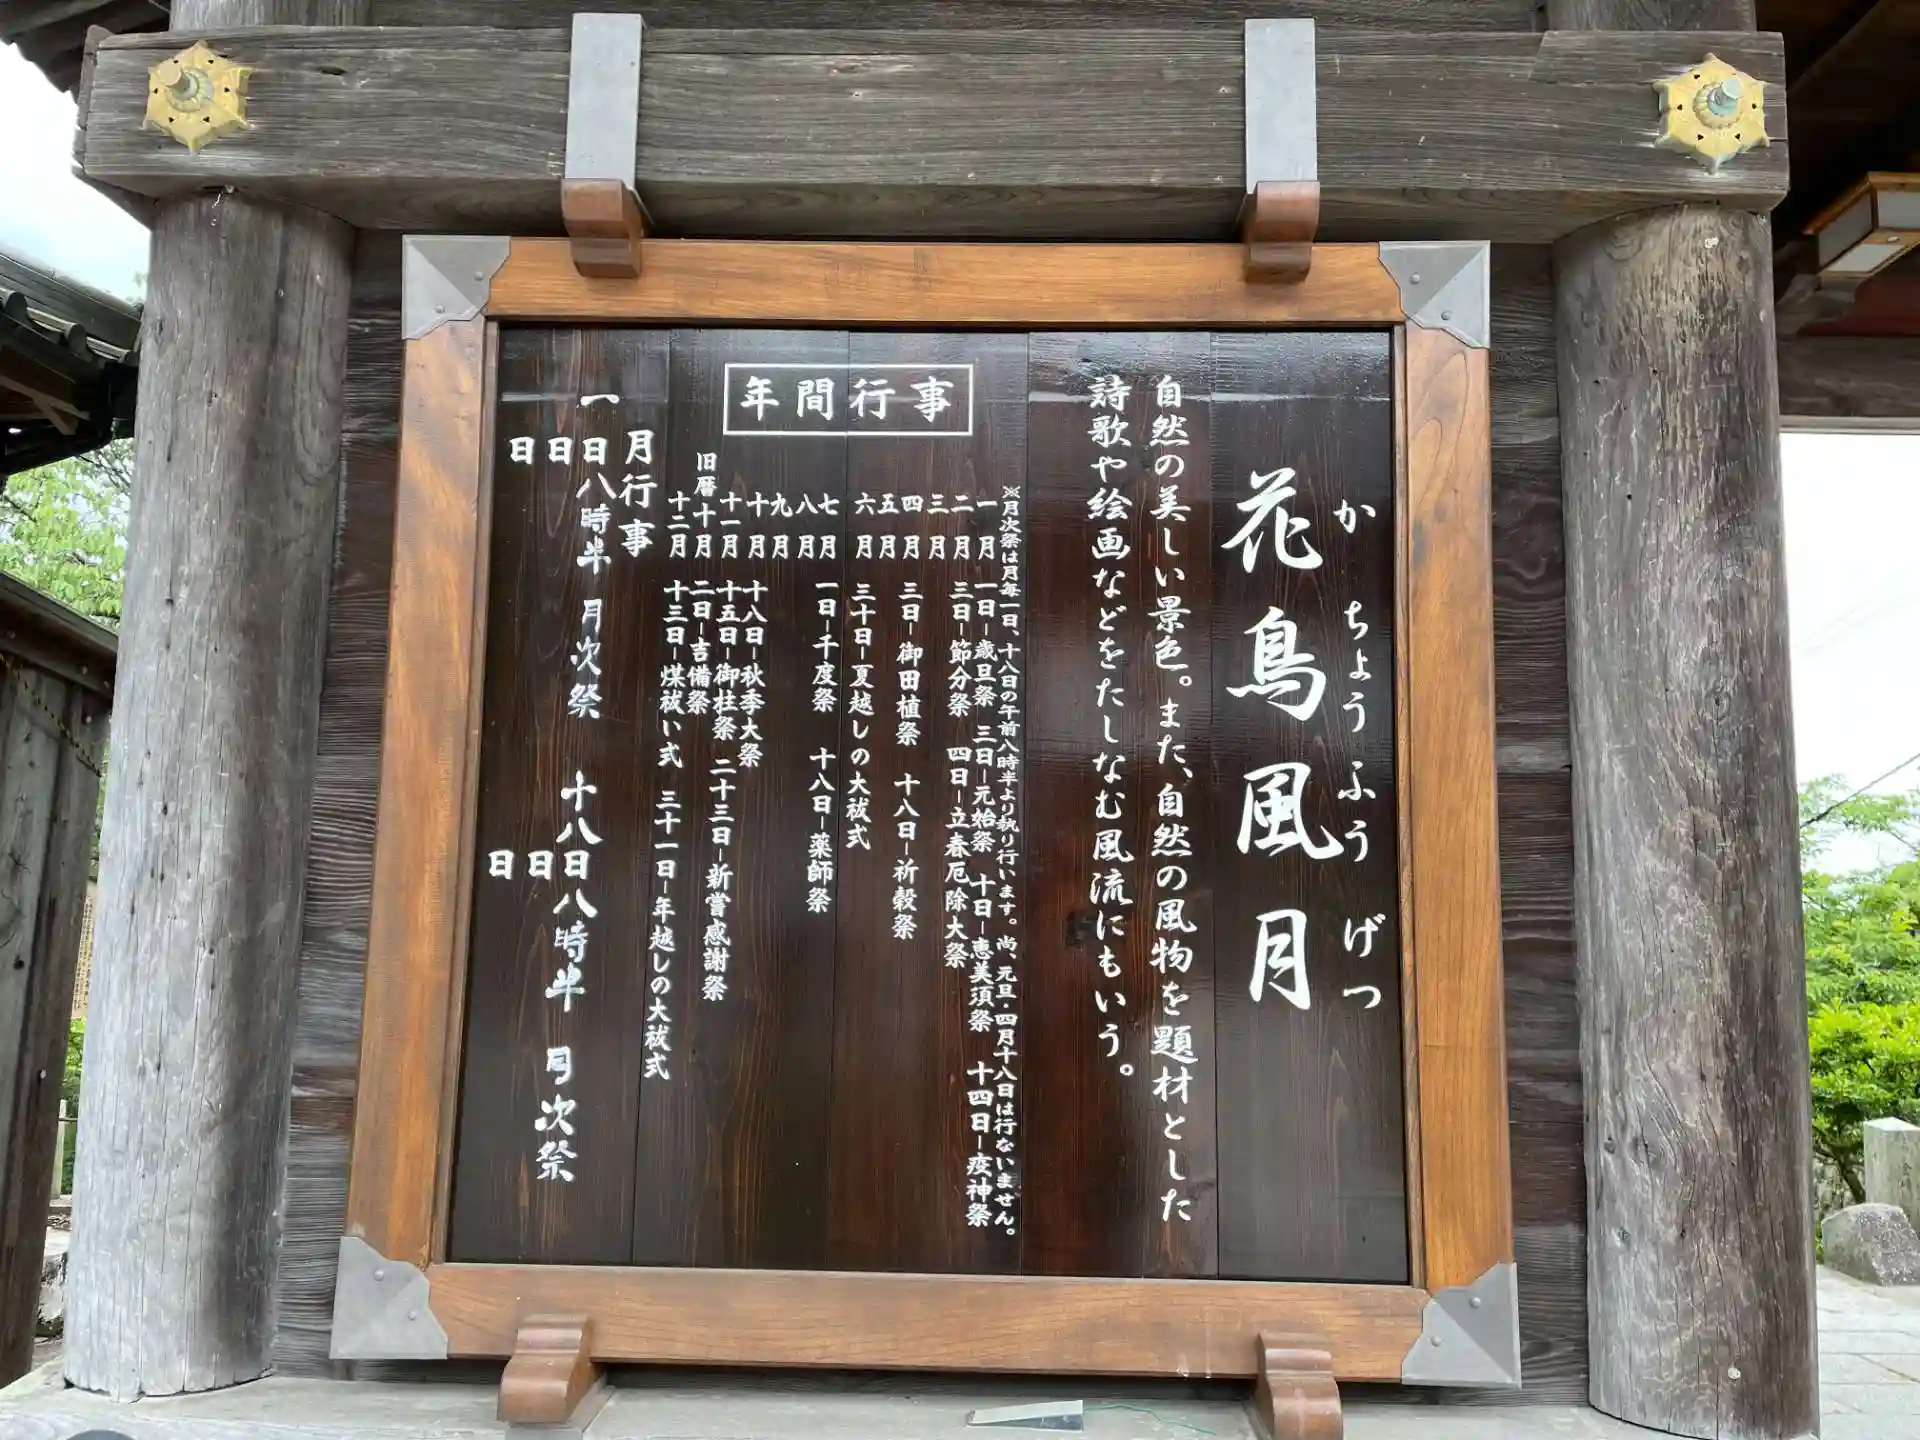 花鳥風月
かちょうふうげつ
自然の美しい景色。また、自然の風物を題材とした
詩歌や絵画などをたしなむ風流にもいう。
年間行事
※月次祭は月毎一日、十八日の午前八時半より執り行います。尚、元旦・四月十八日は行ないません。
一月 一日-歳旦祭 三日-元始祭 十日-恵美須祭 十四日-疫神祭
二月 三日-節分祭 四日-立春厄除大祭
三月
四月 三日-御田植祭 十八日-祈穀祭
五月
六月 三十日-夏越しの大祓式
七月 一日-千度祭 十八日-薬師祭
八月
九月
十月 十八日-秋季大祭
十一月 十五日-御柱祭 二十三日-新嘗感謝祭
旧暦十月 二日-吉備祭
十二月 十三日-煤祓い式 三十一日-年越しの大祓式
月行事
一日八時半 月次祭 十八日八時半 月次祭
日 日
日 日